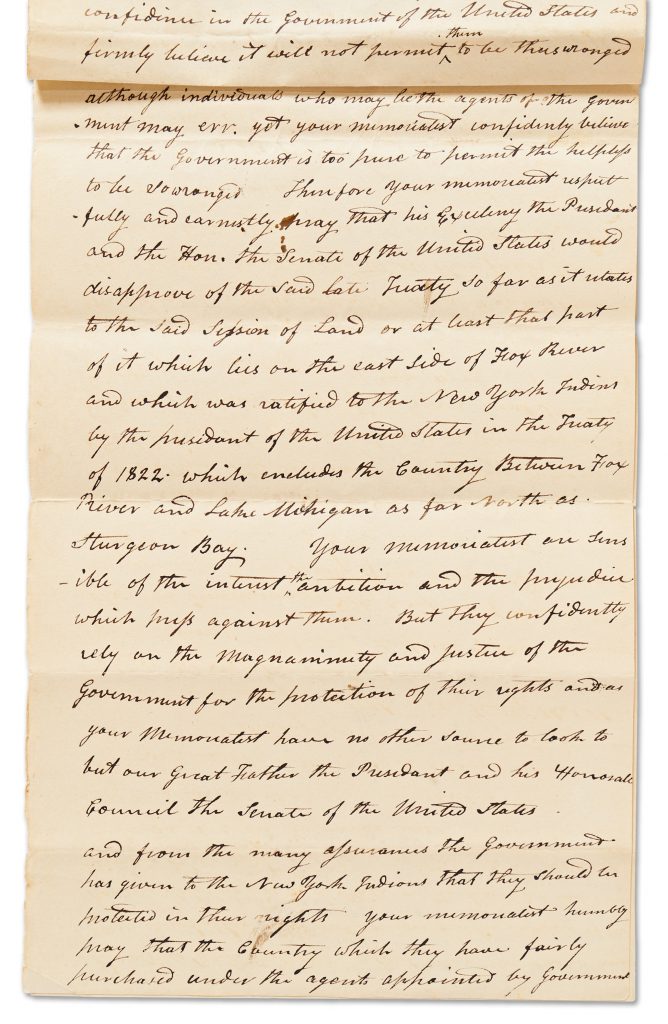 confidence in the Government of the United States and
them
firmly believe it will not permit ‸ to be thus wronged
although individuals who may be the agents of the Govern
-ment may err. yet your memorialist confidenly believe
that the Government is too pure to permit the helpless
to be so wronged Therefore your memorialist respect
-fully and earnestly pray that his Exceleny the Presidant
and the Hon. the Senate of the United States would
disapprove of the said late Treaty so far as it relates
to the said Session of Land or at least that part
of it which lies on the east side of Fox River
and which was ratified to the New York Indins
by the president of the United States in the Treaty
of 1822. which encludes the Country Between Fox
River and Lake Mihigan as far North as.
Sturgeon Bay. Your memorialist are sens
-ible of the interest the ambition and the prejudice
which press against them. But they confidently
rely on the Magnanimity and justice of the
Government for the protection of their rights and as
your Memorialist have no other source to look to
but our Great Father the Presedant and his Honorale
Council the Senate of the United States.
and from the many assurances the Government
has given to the New York Indians that they should be
protected in their rights your memorialist humbly
pray that the Country which they have fairly
purchased under the agents appointed by Government